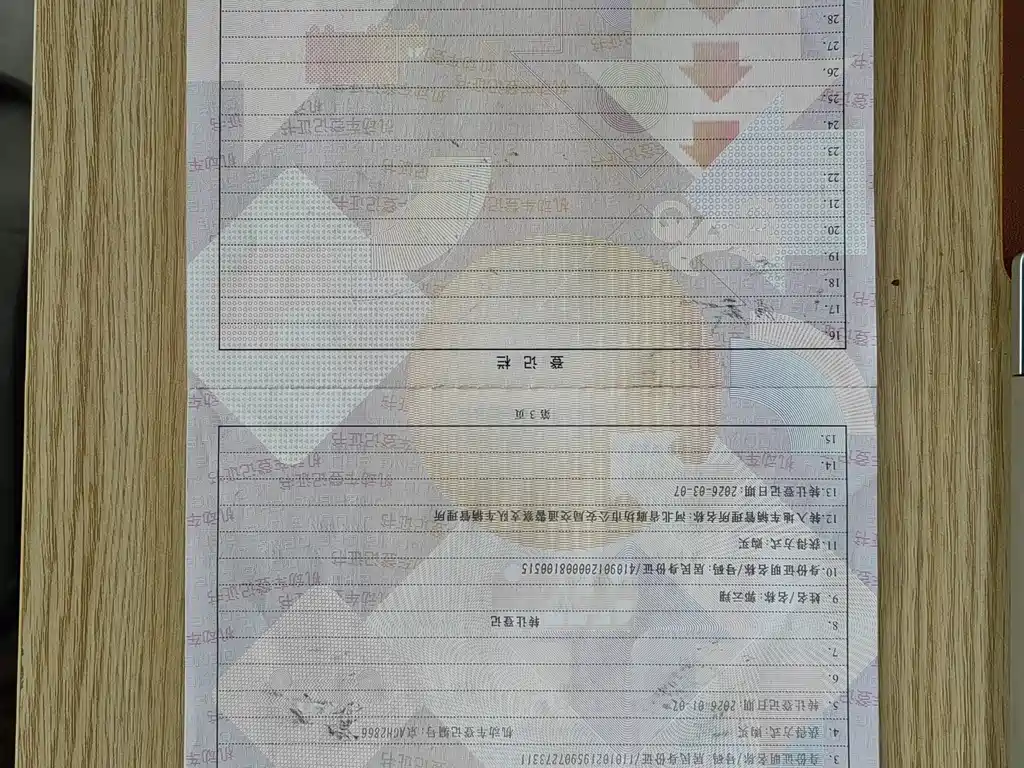 3. 身份证明名称/号码: 居民身份证/110102195907273311
4. 获得方式: 购买 机动车登记编号: 京AGH2866
5. 转让登记日期: 2026-01-07
6.
7.
8. 转让登记
9. 姓名/名称: 郭云翔
10. 身份证明名称/号码: 居民身份证/410901200008100515
11. 获得方式: 购买
12. 转入地车辆管理所名称: 河北省廊坊市公安局交通警察支队车辆管理所
13. 转让登记日期: 2026-03-07
14.
15.
第 3 页
登 记 栏
16.
17.
18.
19.
20.
21.
22.
23.
24.
25.
26.
27.
28.